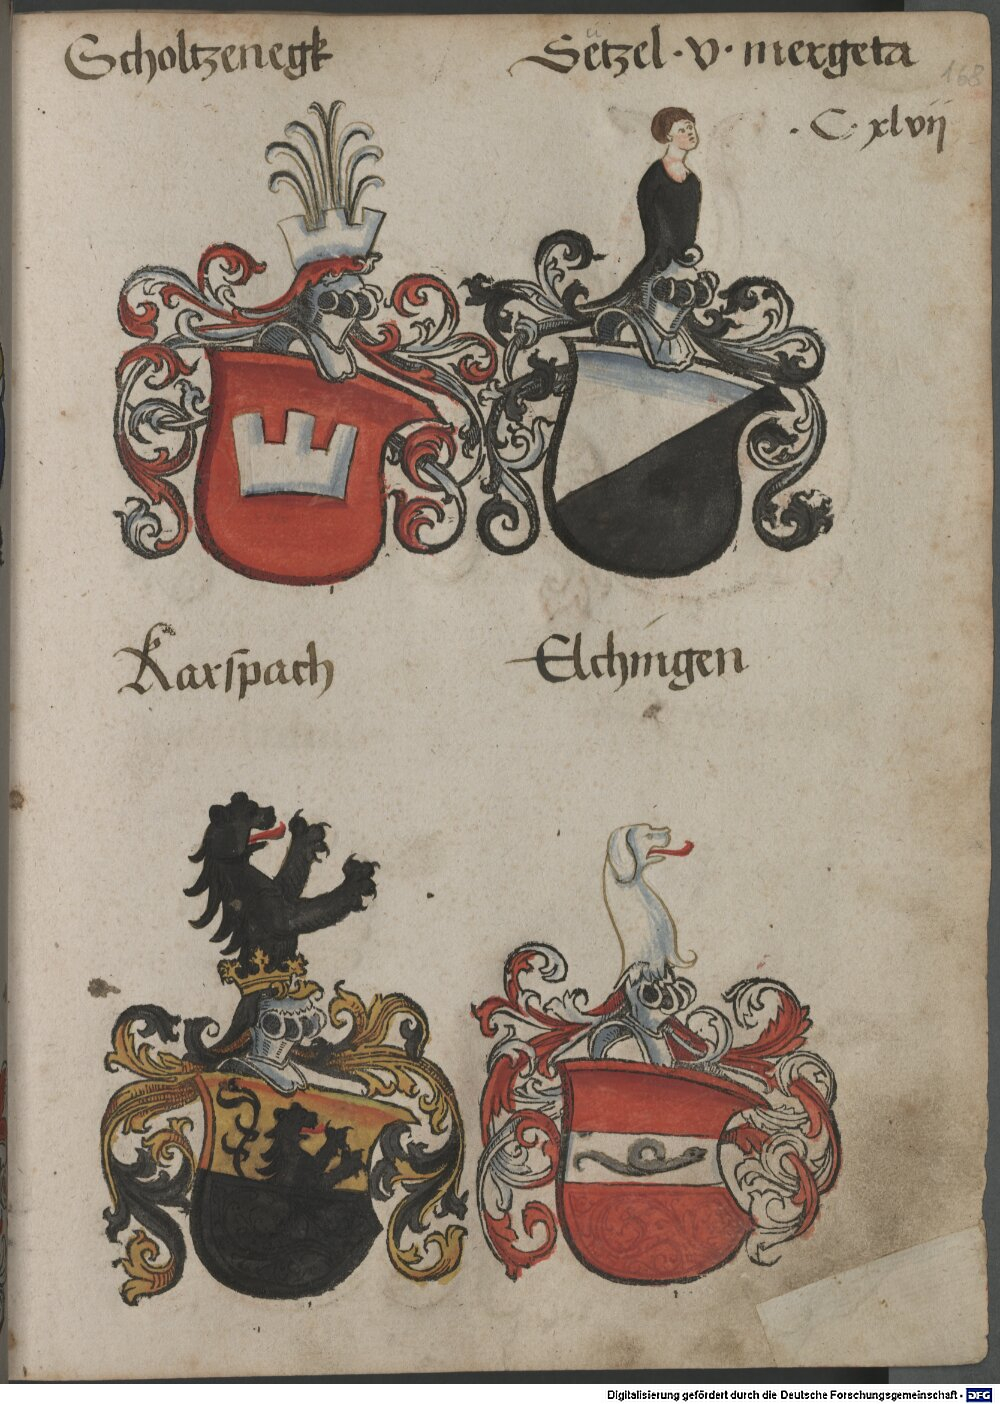 Scholtzenegk
Setzel · v · mergeta
168
· C · xlvij
Karspach
Elchingen
Digitalisierung gefördert durch die Deutsche Forschungsgemeinschaft - DFG